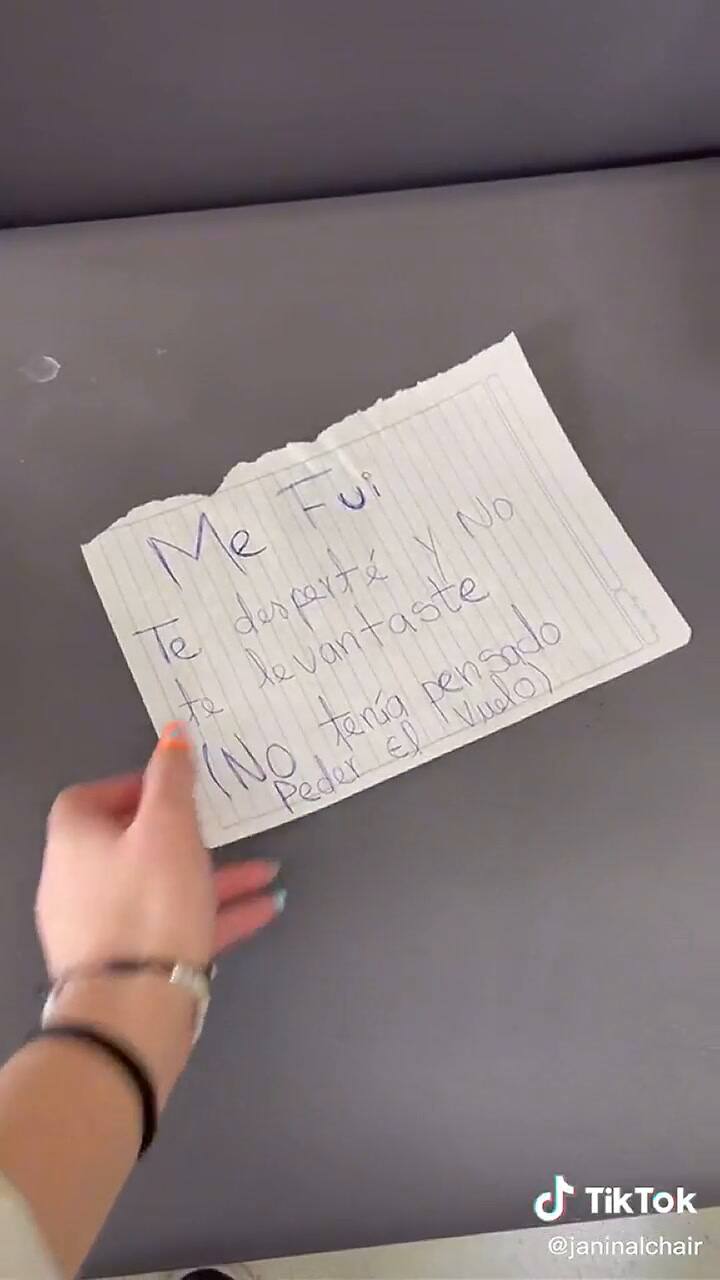 Me Fui
Te desperté y No
te levantaste
(No tenía pensado
Peder El Vuelo)
TikTok
@janinalchair